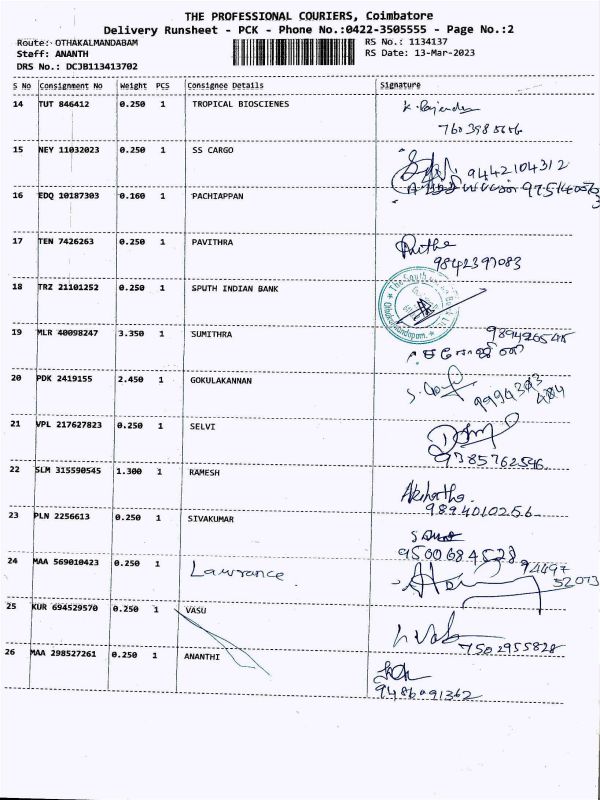 THE PROFESSIONAL COURIERS, Coimbatore
Delivery Runsheet - PCK - Phone No.:0422-3505555 - Page No.:2
Route: OTHAKALMANDABAM RS No.: 1134137
Staff: ANANTH RS Date: 13-Mar-2023
DRS No.: DCJB113413702
S No Consignment No Weight PCS Consignee Details Signature
14 TUT 846412 0.250 1 TROPICAL BIOSCIENES K. Rajendra
15 NEY 11032023 0.250 1 SS CARGO 9442104312
16 EDQ 10187303 0.160 1 PACHIAPPAN
17 TEN 7426263 0.250 1 PAVITHRA
9842397083
18 TRZ 21101252 0.250 1 SPUTH INDIAN BANK
19 MLR 40098247 3.350 1 SUMITHRA
20 PDK 2419155 2.450 1 GOKULAKANNAN
21 VPL 217627823 0.250 1 SELVI
9385762596
22 SLM 315590545 1.300 1 RAMESH Akshatha
9894010256
23 PLN 2256613 0.250 1 SIVAKUMAR
9500684528
24 MAA 569010423 0.250 1 Lawrance 94497
52073
25 KUR 694529570 0.250 1 VASU
7502955828
26 MAA 298527261 0.250 1 ANANTHI
9486091362